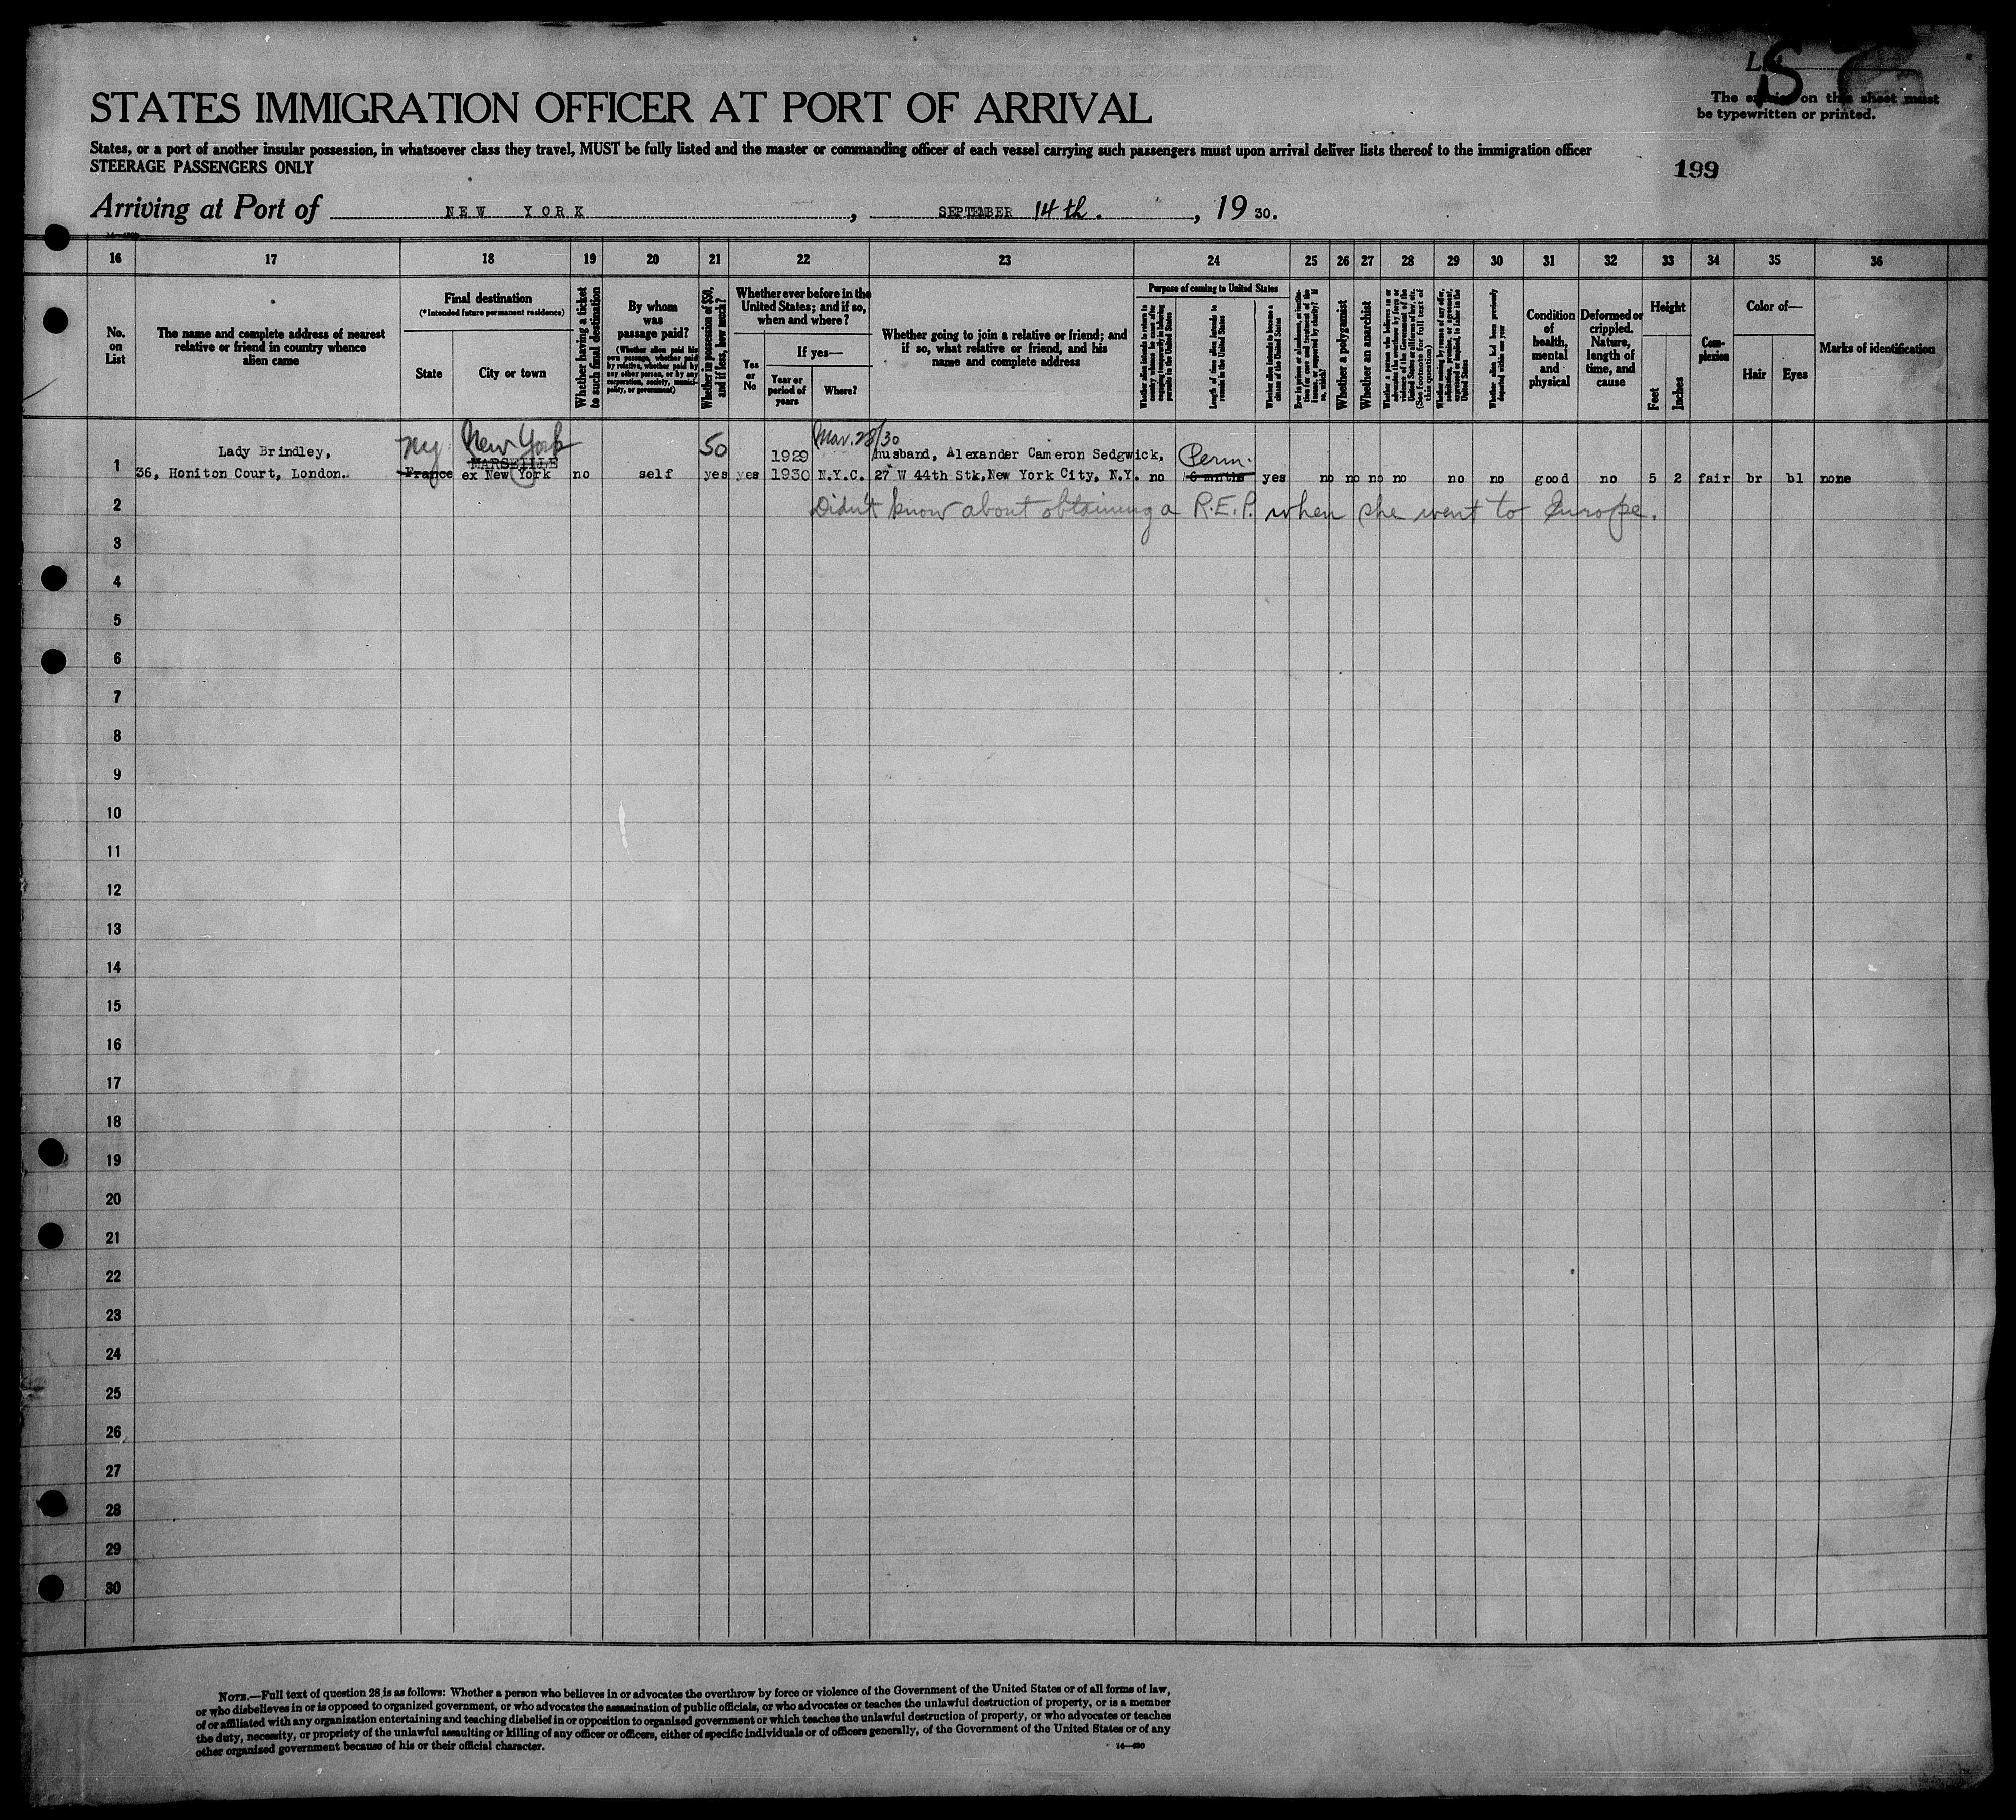 List
S
The entries on this sheet must
be typewritten or printed.
STATES IMMIGRATION OFFICER AT PORT OF ARRIVAL
States, or a port of another insular possession, in whatsoever class they travel, MUST be fully listed and the master or commanding officer of each vessel carrying such passengers must upon arrival deliver lists thereof to the immigration officer
STEERAGE PASSENGERS ONLY
199
Arriving at Port of NEW YORK, SEPTEMBER 14th., 19 30.
16 17 18 19 20 21 22 23 24 25 26 27 28 29 30 31 32 33 34 35 36
No. on List
The name and complete address of nearest relative or friend in country whence alien came
Final destination
(*Intended future permanent residence)
State
City or town
Whether having a ticket to such final destination
By whom was passage paid?
(Whether alien paid his own passage, whether paid by relative, whether paid by any other person, or by any corporation, society, municipality, or government)
Whether in possession of $50, and if less, how much?
Whether ever before in the United States; and if so, when and where?
Yes or No
If yes—
Year or period of years
Where?
Whether going to join a relative or friend; and if so, what relative or friend, and his name and complete address
Purpose of coming to United States
Whether alien intends to return to country whence he came after engaging temporarily in laboring pursuits in the United States
Length of time alien intends to remain in the United States
Whether alien intends to become a citizen of the United States
Ever in prison or almshouse, or institution for care and treatment of the insane, or supported by charity? If so, which?
Whether a polygamist
Whether an anarchist
Whether a person who believes in or advocates the overthrow by force or violence of the Government of the United States or all forms of law, etc. (See footnote for full text of this question)
Whether coming by reason of any offer, solicitation, promise, or agreement, expressed or implied, to labor in the United States
Whether alien had been previously deported within one year
Condition of health, mental and physical
Deformed or crippled. Nature, length of time, and cause
Height
Feet
Inches
Complexion
Color of—
Hair
Eyes
Marks of identification
NY New York 50 Mar. 28/30
Lady Brindley, MARSEILLE 1929 husband, Alexander Cameron Sedgwick, Perm.
1 36, Honiton Court, London. France ex New York no self yes yes 1930 N.Y.C. 27 W 44th Stk, New York City, N.Y. no 6 mnths yes no no no no no no good no 5 2 fair br bl none
2 Didn't know about obtaining a R.E.P. when she went to Europe.
3
4
5
6
7
8
9
10
11
12
13
14
15
16
17
18
19
20
21
22
23
24
25
26
27
28
29
30
NOTE.—Full text of question 28 is as follows: Whether a person who believes in or advocates the overthrow by force or violence of the Government of the United States or of all forms of law,
or who disbelieves in or is opposed to organized government, or who advocates the assassination of public officials, or who advocates or teaches the unlawful destruction of property, or is a member
of or affiliated with any organization entertaining and teaching disbelief in or opposition to organised government or which teaches the unlawful destruction of property, or who advocates or teaches
the duty, necessity, or propriety of the unlawful assaulting or killing of any officer or officers, either of specific individuals or of officers generally, of the Government of the United States or of any
other organised government because of his or their official character.
14—480